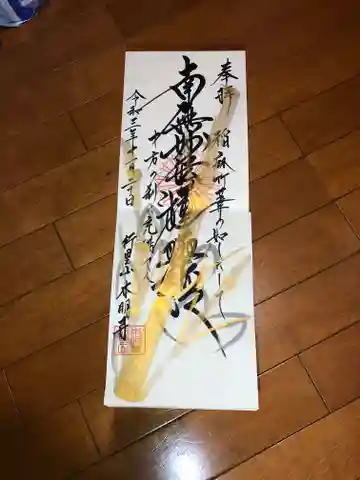 奉拝 稲麻竹葦の如くして
南無妙法蓮華経
十方の刹に充満
令和三年十一月二十日
本明寺